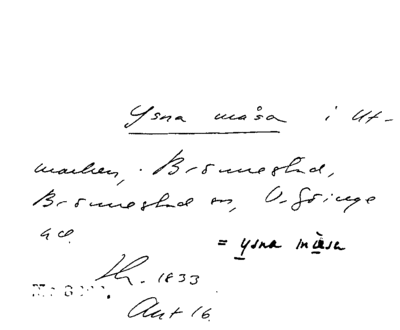 Ysna måsa i Ut-
marken, Brönnestad,
Brönnestad sn, V. Göinge
hd.
= ysna måsa
Sk. 1833
Akt 16